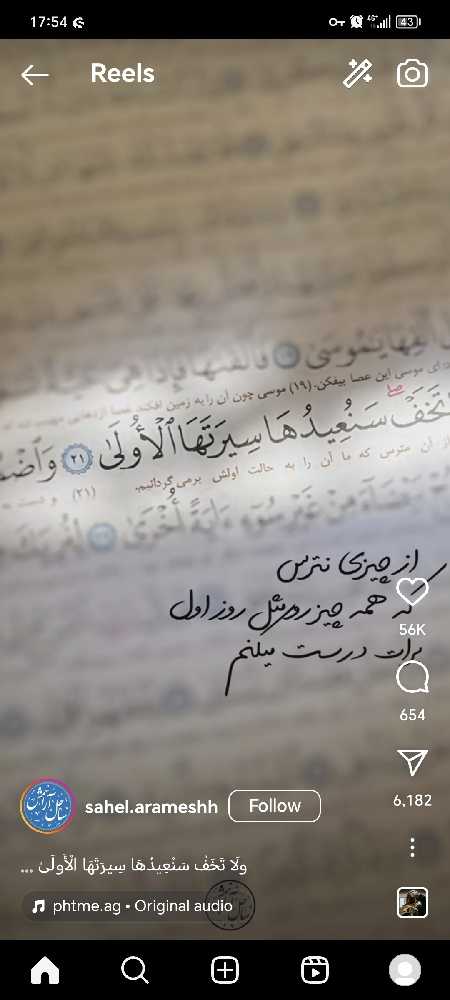 17:54
4G
43
Reels
أَلْقِهَا يَٰمُوسَىٰ ۝ فَأَلْقَىٰهَا فَإِذَا هِىَ
ای موسی این عصا بیفکن. (۱۹) موسی چون آن را به زمین افکند
تَخَفْ سَنُعِيدُهَا سِيرَتَهَا ٱلْأُولَىٰ ۝٢١ وَٱضْمُ
از آن مترس که ما آن را به حالت اولش برمی‌گردانیم. (۲۱) و دست
مِنْ غَيْرِ سُوٓءٍ ءَايَةً أُخْرَىٰ ۝ لِنُرِيَكَ
از چیزی نترس
که همه چیز رو مثل روز اول
برات درست میکنم
56K
654
6,182
sahel.arameshh
Follow
ولَا تَخَفْ سَنُعِيدُهَا سِيرَتَهَا الْأُولَىٰ ...
phtme.ag • Original audio